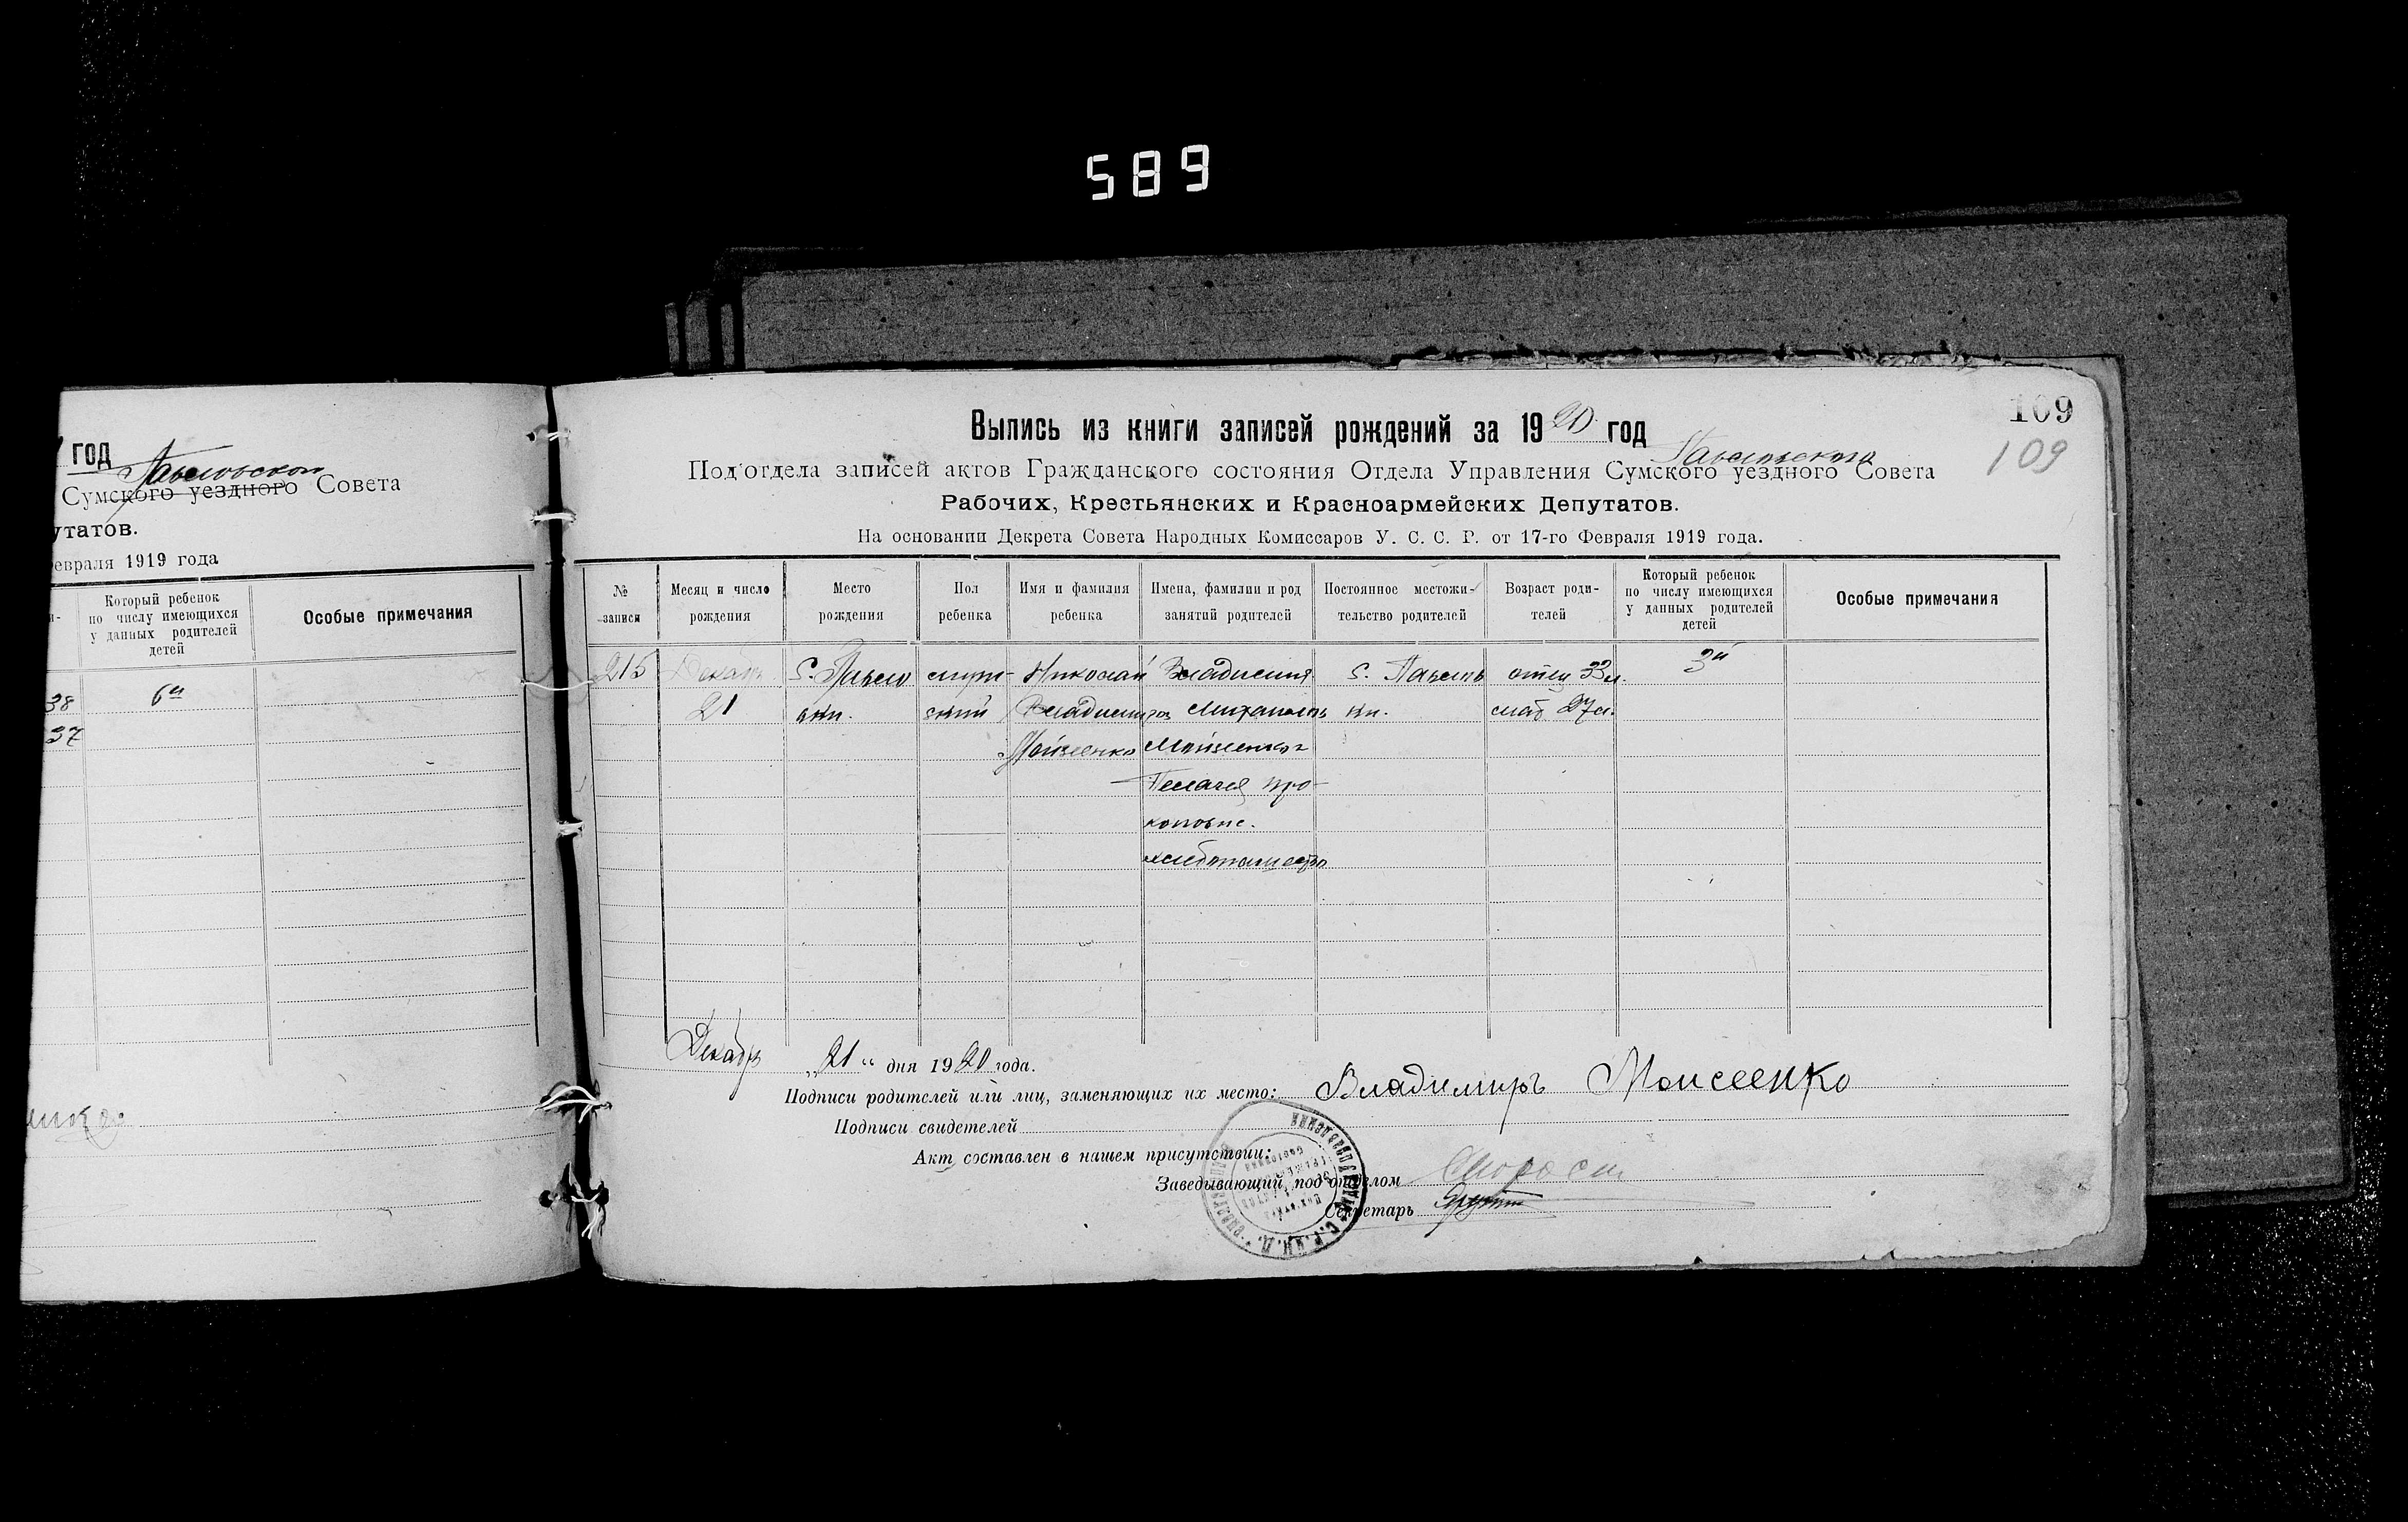 589
год
Павловской
Сумского уездного Совета
утатов.
евраля 1919 года
и-
Который ребенок
по числу имеющихся
у данных родителей
детей
Особые примечания
38
6й
37
109
109
Выпись из книги записей рождений за 1920 год
Павловского
Под'отдела записей актов Гражданского состояния Отдела Управления Сумского уездного Совета
Рабочих, Крестьянских и Красноармейских Депутатов.
На основании Декрета Совета Народных Комиссаров У. С. С. Р. от 17-го Февраля 1919 года.
№ записи
Месяц и число рождения
Место рождения
Пол ребенка
Имя и фамилия ребенка
Имена, фамилии и род занятий родителей
Постоянное местожи-тельство родителей
Возраст роди-телей
Который ребенок по числу имеющихся у данных родителей детей
Особые примечания
215 Декабр. С. Павло муж- Николай Владимир С. Павлов отец 33 л. 3й
21 вки. ский Владимиров Михайлов ки. мат 27 л.
Мойзеенко Мойзеенко
Пелагея Про-
коповне.
хлебопашество
Декабр „21“ дня 1920 года.
Подписи родителей или лиц, заменяющих их место: Владимиръ Моисеенко
Подписи свидетелей
Акт составлен в нашем присутствии:
Заведывающий под'отделом
Секретарь